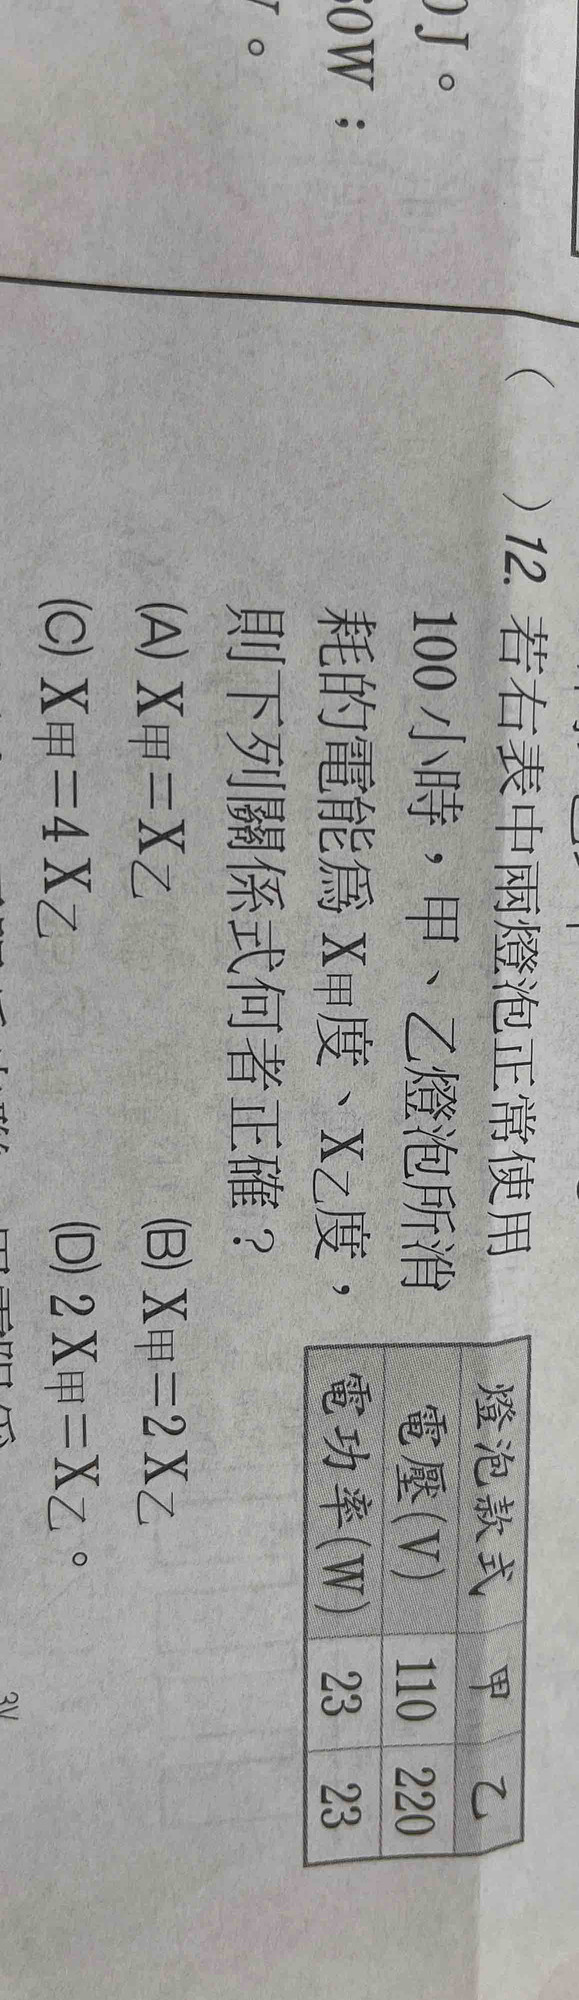 0J。
60W；
。
( )12. 若右表中兩燈泡正常使用
100 小時，甲、乙燈泡所消
耗的電能為 X甲度、X乙度，
則下列關係式何者正確？
(A) X甲＝X乙 (B) X甲＝2X乙
(C) X甲＝4X乙 (D) 2X甲＝X乙。
燈泡款式 甲 乙
電壓(V) 110 220
電功率(W) 23 23
3V